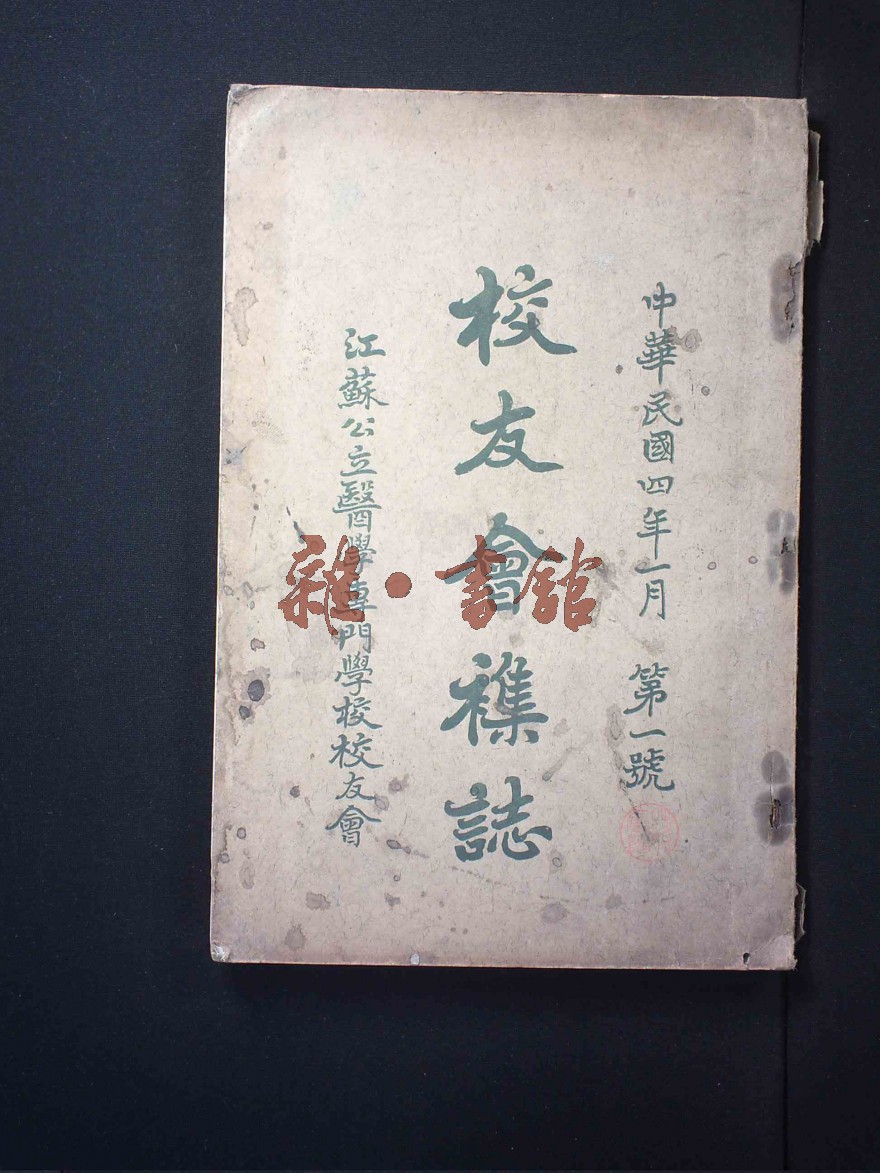 中華民國四年一月 第一號
校友會襍誌
江蘇公立醫學專門學校校友會
雜·書館